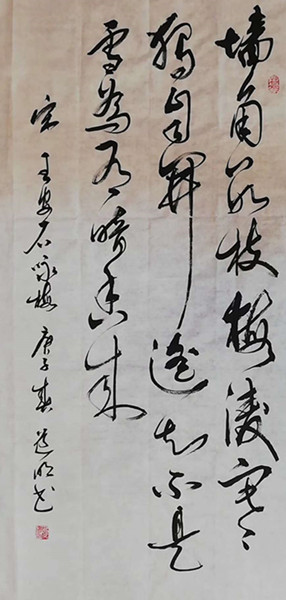 墙角数枝梅凌寒
独自开遥知不是
雪为有暗香来
宋 王安石咏梅 庚子春 书